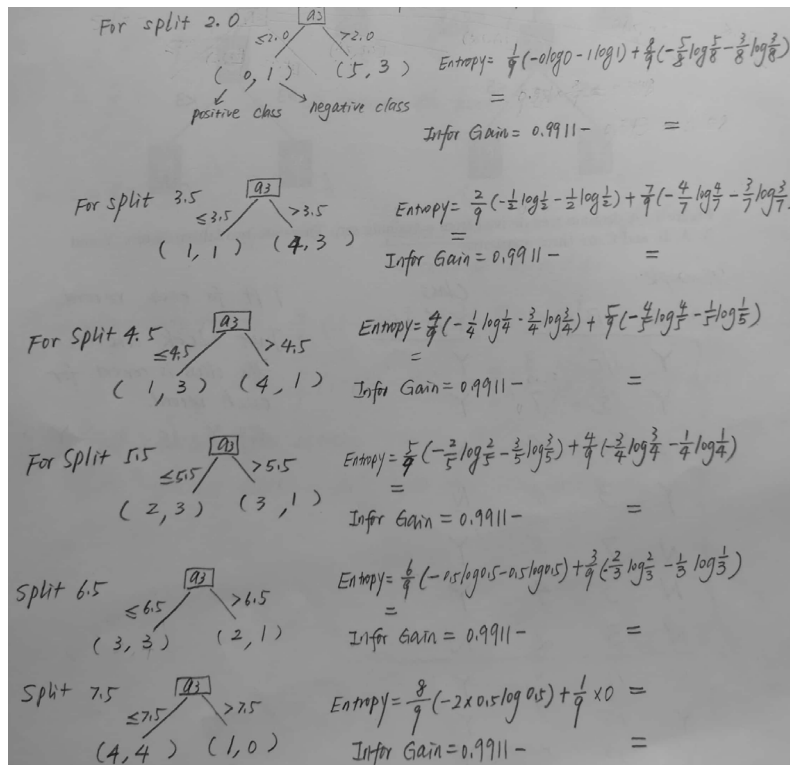 For split 2.0
a3
≤2.0 >2.0
(0, 1) (5, 3)
positive class negative class
Entropy = 1/9(-0log0 - 1log1) + 8/9(-5/8log5/8 - 3/8log3/8)
=
Infor Gain = 0.9911- =
For split 3.5
a3
≤3.5 >3.5
(1, 1) (4, 3)
Entropy = 2/9(-1/2log1/2 - 1/2log1/2) + 7/9(-4/7log4/7 - 3/7log3/7
=
Infor Gain = 0.9911- =
For Split 4.5
a3
≤4.5 >4.5
(1, 3) (4, 1)
Entropy = 4/9(-1/4log1/4 - 3/4log3/4) + 5/9(-4/5log4/5 - 1/5log1/5)
=
Infor Gain = 0.9911- =
For Split 5.5
a3
≤5.5 >5.5
(2, 3) (3, 1)
Entropy = 5/9(-2/5log2/5 - 3/5log3/5) + 4/9(-3/4log3/4 - 1/4log1/4)
=
Infor Gain = 0.9911- =
Split 6.5
a3
≤6.5 >6.5
(3, 3) (2, 1)
Entropy = 6/9(-0.5log0.5-0.5log0.5) + 3/9(-2/3log2/3 - 1/3log1/3)
=
Infor Gain = 0.9911- =
Split 7.5
a3
≤7.5 >7.5
(4, 4) (1, 0)
Entropy = 8/9(-2×0.5log0.5) + 1/9×0 =
Infor Gain = 0.9911- =